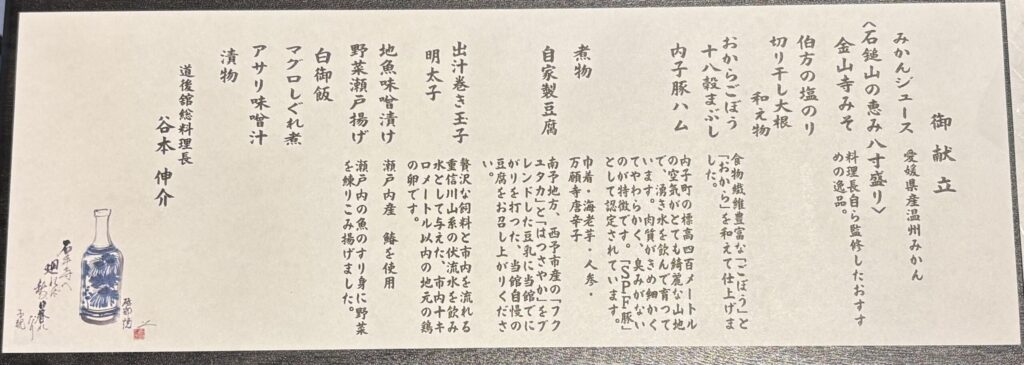 御献立
みかんジュース　愛媛県産温州みかん
〈石鎚山の恵み八寸盛り〉
金山寺みそ　料理長自ら監修したおすす
めの逸品。
伯方の塩のり
切り干し大根
和え物
おからごぼう　食物繊維豊富な「ごぼう」と
十八穀まぶし　「おから」を和えて仕上げま
した。
内子豚ハム　内子町の標高四百メートル
の空気がとても綺麗な山地
で、湧き水を飲んで育って
います。肉質がきめ細かく
てやわらかく、臭みがない
のが特徴です。「SPF豚」
として認定されています。
煮物　巾着・海老芋・人参・
万願寺唐辛子
自家製豆腐　南予地方、西予市産の「フク
ユタカ」と「はつさやか」をブ
レンドした豆乳に当館でに
がりを打った、当館自慢の
豆腐をお召し上がりくださ
い。
出汁巻き玉子　贅沢な飼料と市内を流れる
明太子　重信川山系の伏流水を飲み
水として与えた、市内十キ
ロメートル以内の地元の鶏
の卵です。
地魚味噌漬け　瀬戸内産　鰆を使用
野菜瀬戸揚げ　瀬戸内の魚のすり身に野菜
を練りこみ揚げました。
白御飯
マグロしぐれ煮
アサリ味噌汁
漬物
道後舘総料理長
谷本伸介